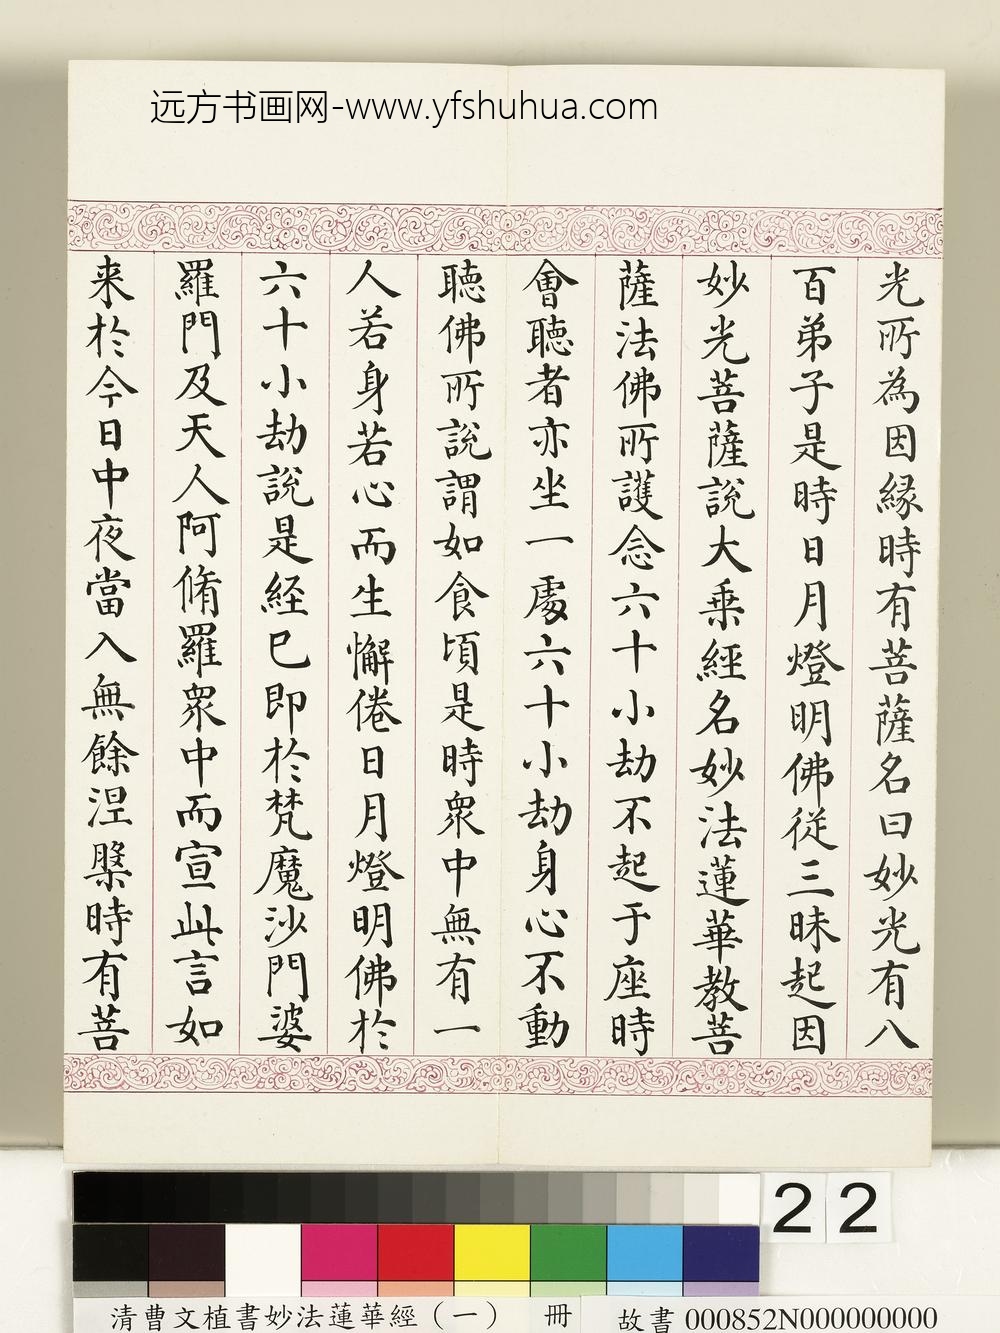 远方书画网-www.yfshuhua.com
光所為因緣時有菩薩名曰妙光有八
百弟子是時日月燈明佛從三昧起因
妙光菩薩說大乗經名妙法蓮華教菩
薩法佛所護念六十小劫不起于座時
會聽者亦坐一處六十小劫身心不動
聽佛所說謂如食頃是時眾中無有一
人若身若心而生懈倦日月燈明佛於
六十小劫說是経已即於梵魔沙門婆
羅門及天人阿脩羅眾中而宣此言如
来於今日中夜當入無餘涅槃時有菩
22
清曹文植書妙法蓮華經（一） 冊
故書 000852N000000000